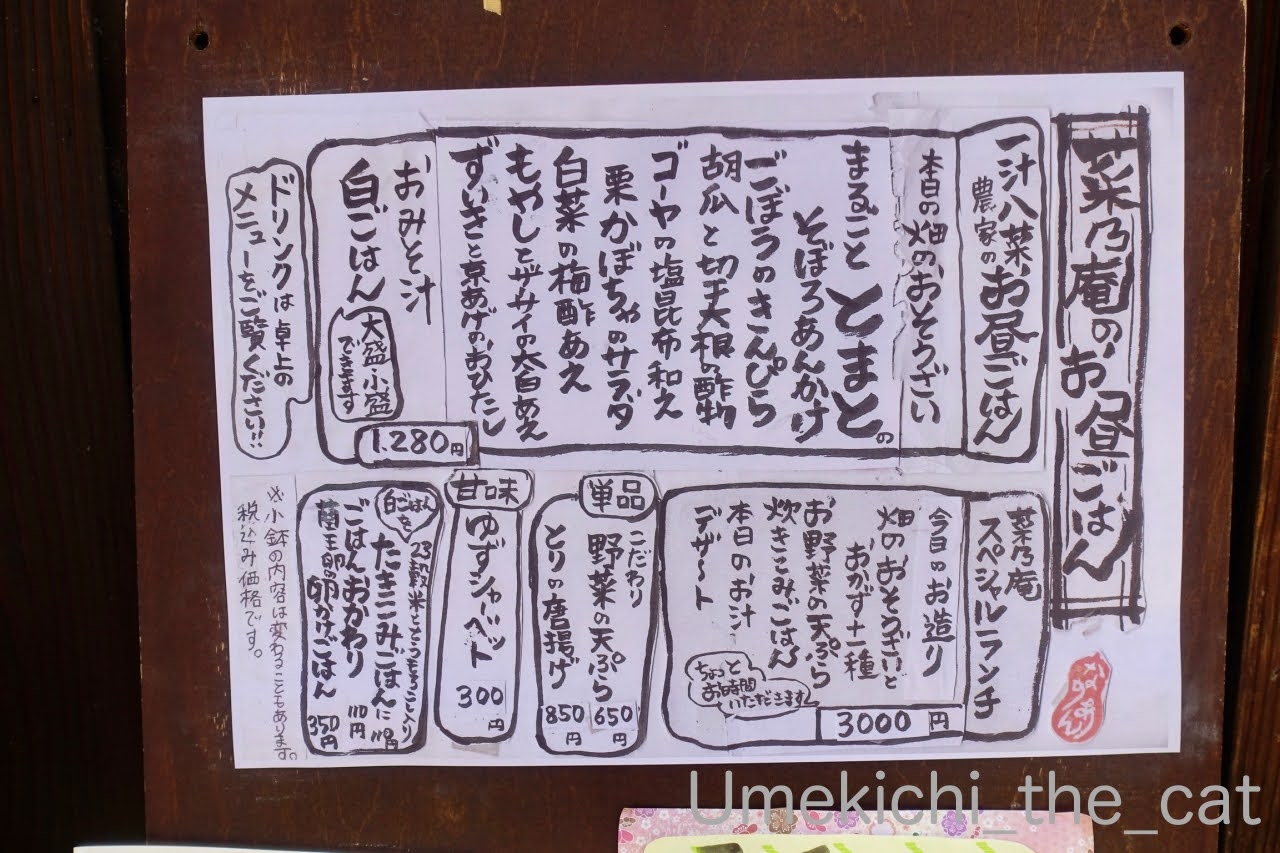 菜乃庵のお昼ごはん
一汁八菜
農家のお昼ごはん
本日の畑のおそうざい
まるごと とまとの
そぼろあんかけ
ごぼうのきんぴら
胡瓜と切干大根の酢物
ゴーヤの塩昆布和え
栗かぼちゃのサラダ
白菜の梅酢あえ
もやしとザーサイの太白あえ
ずいきと京あげのおひたし
おみそ汁
白ごはん
大盛・小盛
できます
1.280円
ドリンクは卓上の
メニューをご覧ください!!
菜乃庵
スペシャルランチ
今日のお造り
畑のおそうざいと
おかず十一種
お野菜の天ぷら
炊きこみごはん
本日のお汁
デザート
ちょっと
お時間
いただきます
3000円
単品
こだわり
野菜の天ぷら 650円
とりの唐揚げ 850円
甘味
ゆずシャーベット 300円
白ごはんを
23穀米ととうもろこし入り
たきこみごはんに 110円
ごはんおかわり 110円
蘭王卵の卵かけごはん 350円
※小鉢の内容は変わることもあります。
税込み価格です。
Umekichi_the_cat